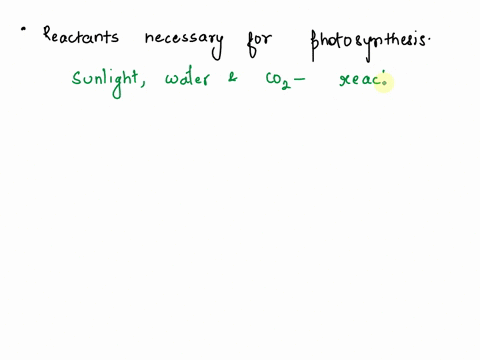 • Reactants necessary for photosynthesis.
Sunlight, water & CO₂ – reac